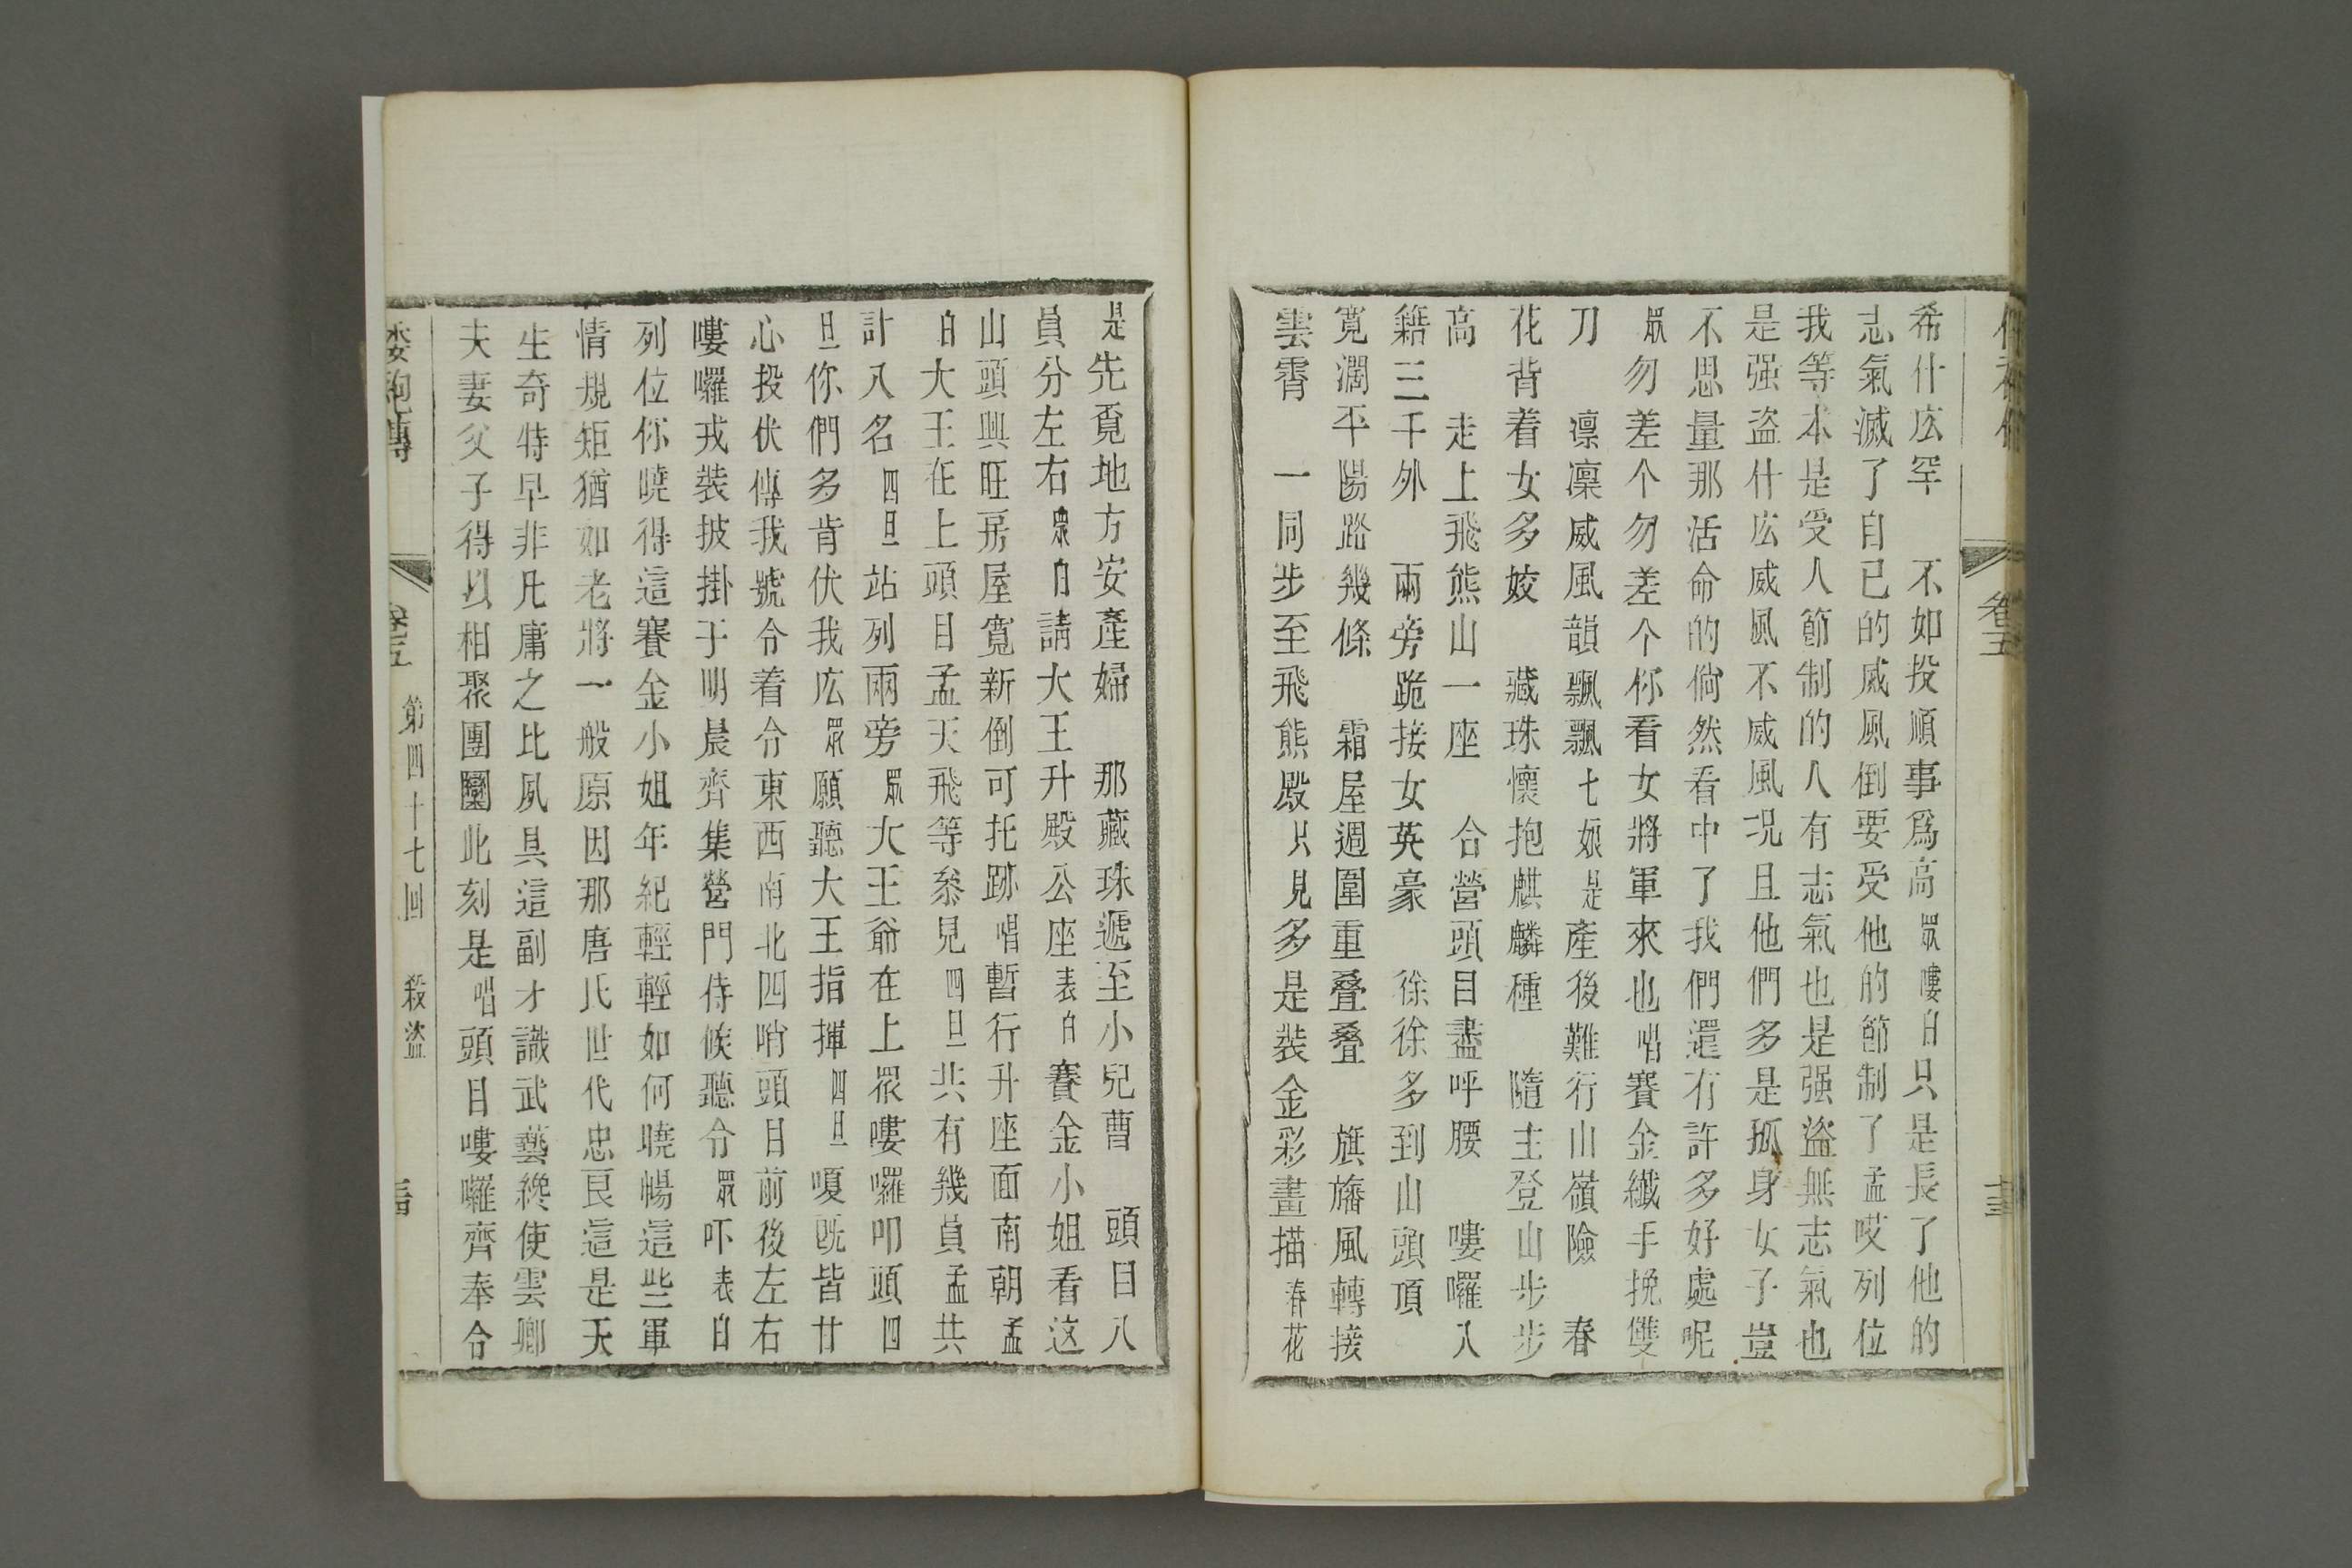 卷五
希什庅罕 不如投順事爲高 眾嘍白 只是長了他的
志氣滅了自已的威風倒要受他的節制了 孟 哎列位
我等本是受人節制的人有志氣也是强盜無志氣也
是强盗什庅威風不威風况且他們多是孤身女子豈
不思量那活命的倘然看中了我們還有許多好處呢
眾 勿差个勿差个你看女將軍來也 唱 賽金纖手挽雙
刀 凛凛威風韻飄飄 七娘是 產後難行山嶺險 春
花背着女多姣 藏珠懷抱麒麟種 隨主登山步步
高 走上飛熊山一座 合營頭目盡呼腰 嘍囉八
籍三千外 兩旁跪接女英豪 徐徐多到山頭頂
寛濶平陽路幾條 霜屋週圍重叠叠 旗旛風轉接
雲霄 一同步至飛熊殿 只見 多是裝金彩畫描 春花
是 先覔地方安產婦 那藏珠遞至小兒曹 頭目八
員分左右 眾白 請大王升殿公座 表白 賽金小姐看这
山頭興旺房屋寬新倒可托跡 唱 暫行升座面南朝 孟
白 大王在上頭目孟天飛等叅見 四旦 共有幾員 孟 共
計八名 四旦 站列兩旁 眾 大王爺在上眾嘍囉叩頭 四
旦 你們多肯伏我庅 眾 願聽大王指揮 四旦 嗄旣皆廿
心投伏傳我號令着令東西南北四哨頭目前後左右
嘍囉戎裝披掛于明晨齊集營門侍候聽令 眾 吓 表白
列位你曉得這賽金小姐年紀輕輕如何曉暢這些軍
情規矩猶如老將一般原因那唐氏世代忠良這是天
生奇特早非凡庸之比夙具這副才識武藝終使雲卿
夫妻父子得以相聚團圞此刻是 唱 頭目嘍囉齊奉令
袍傳 卷五 第四十七回 殺盜